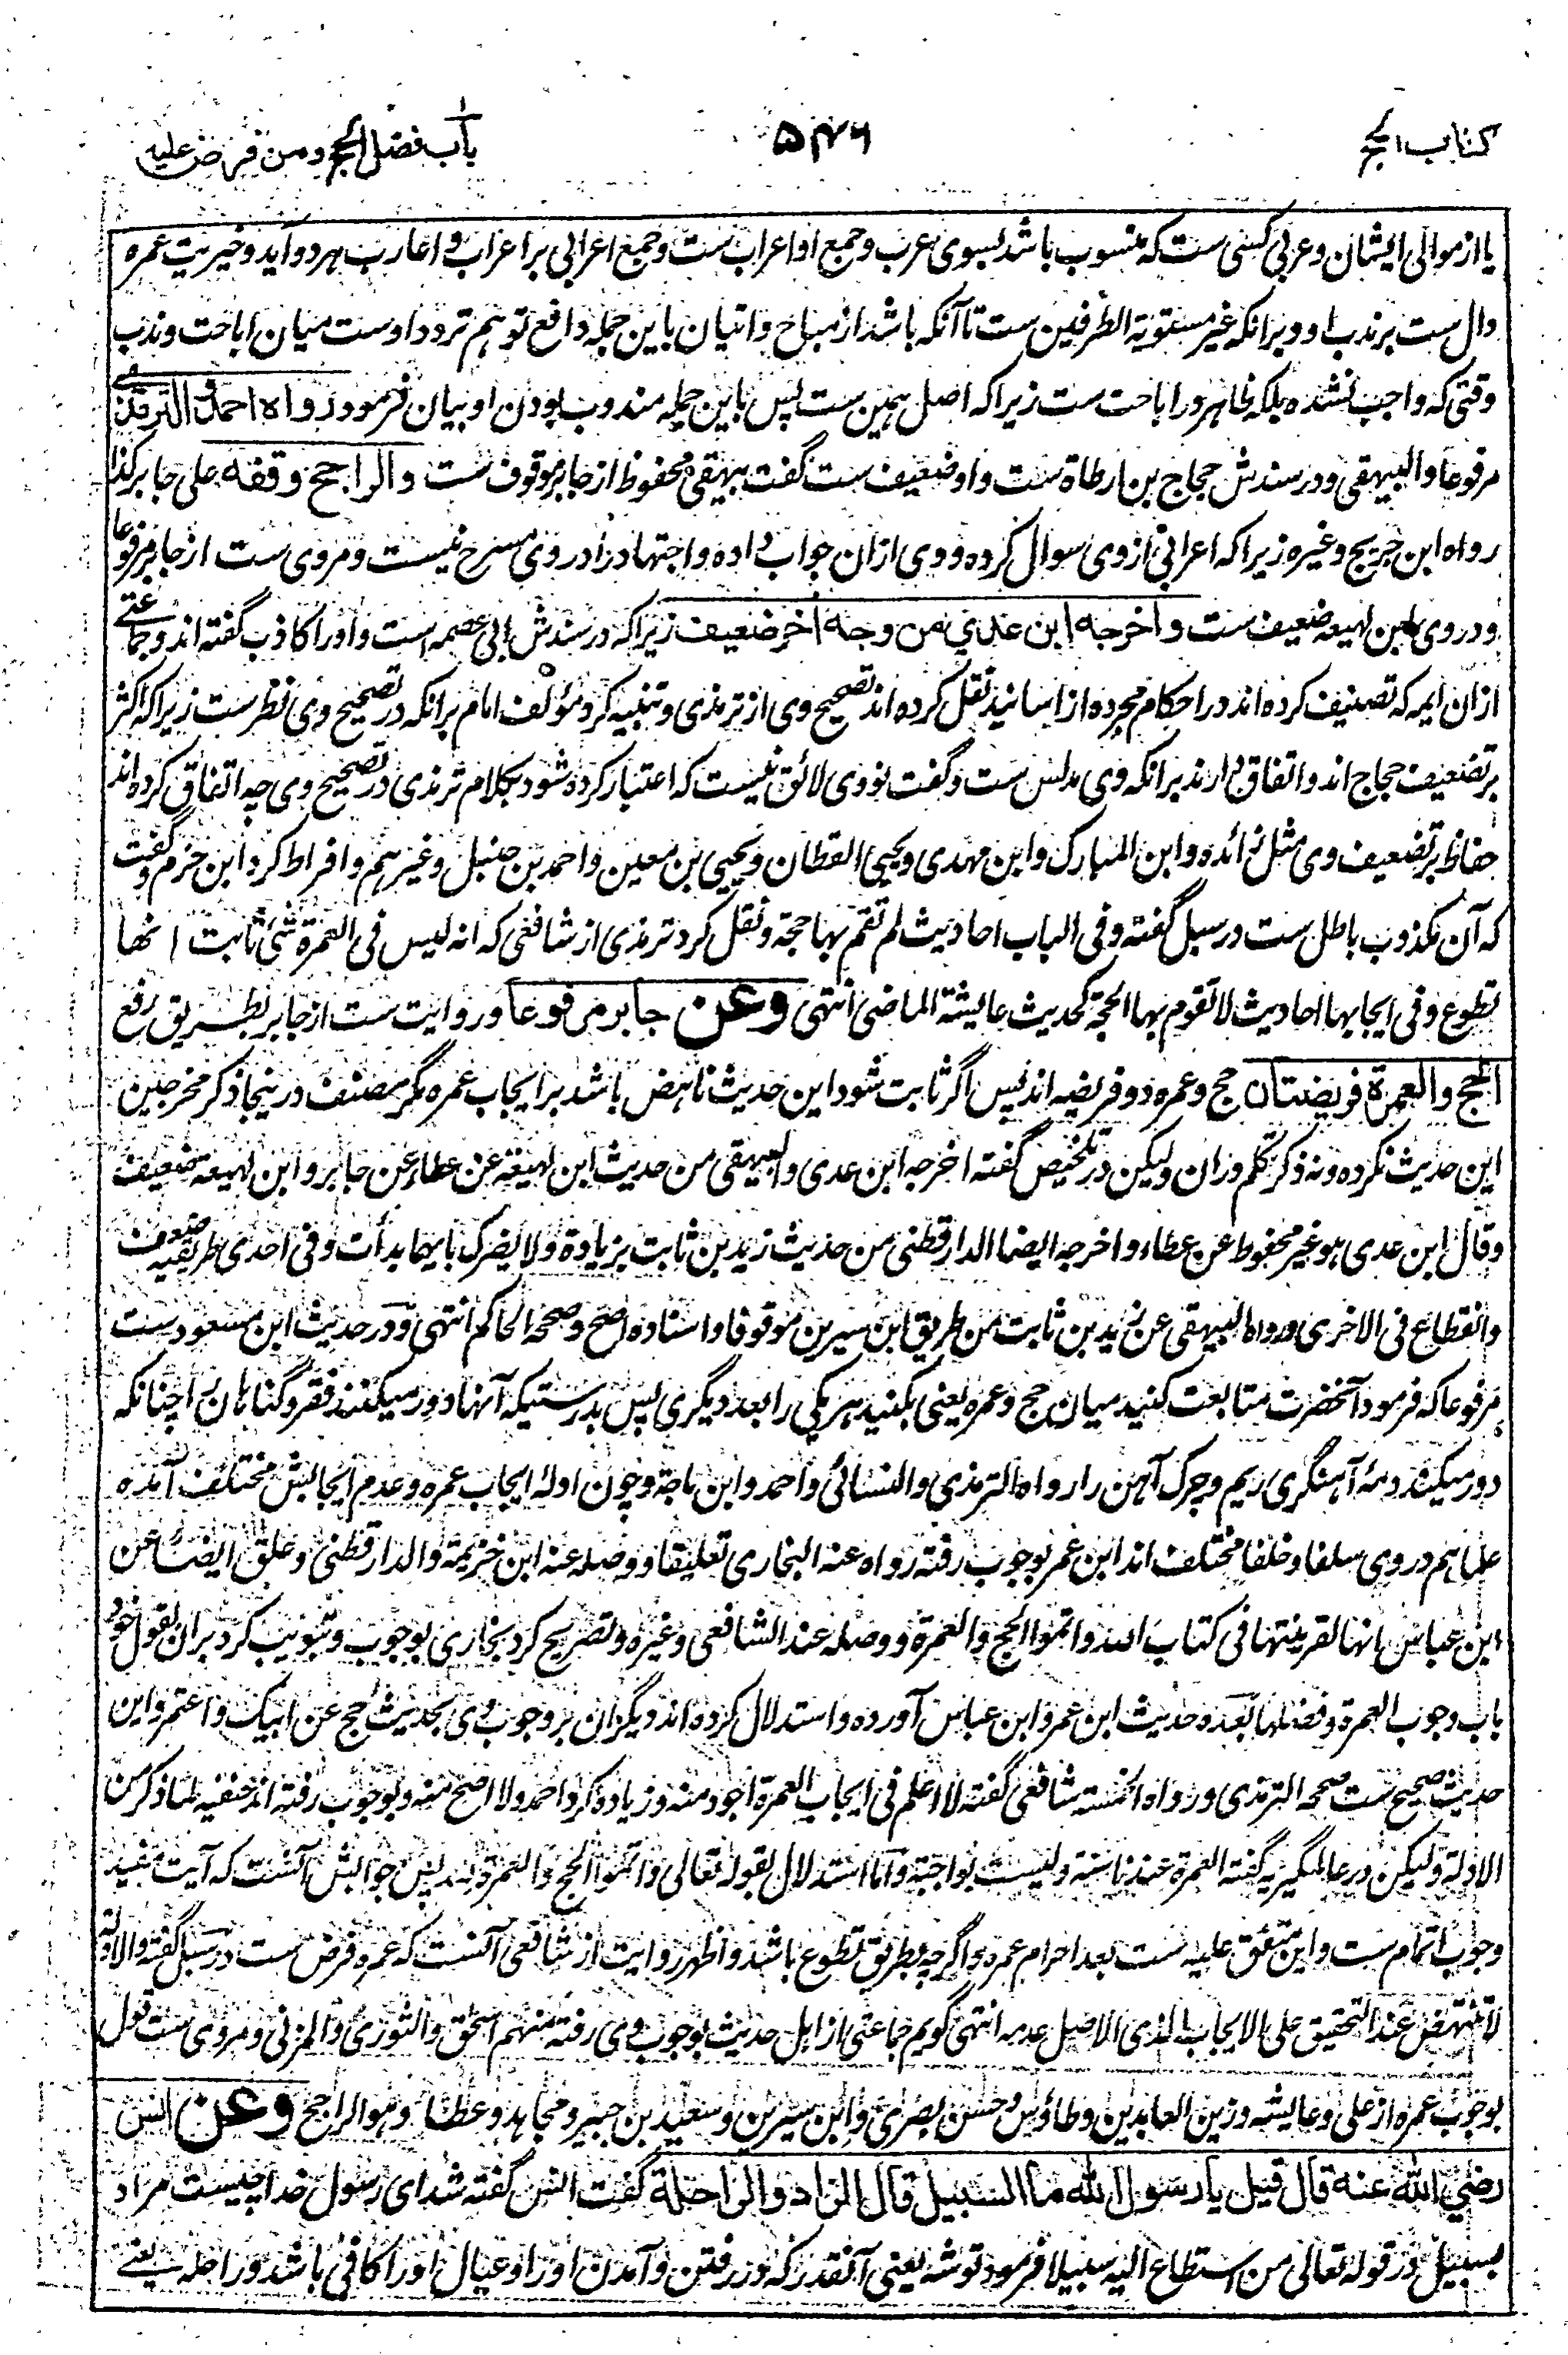 کتاب الحج
۵۴۶
باب فضل الحج ومن فرض علیه
یا از موالی ایشان و عربی کسی ست که منسوب باشد بسوی عرب و جمع او اعراب ست و جمع اعرابی بر اعراب و اعارب هر دو آید و خیریت عمره
دال ست بر ندب او و برانکه غیر مستویة الطرفین ست تا آنکه باشد از مباح و اتیان باین جمله دافع توهم تردد اوست میان اباحت و ندب
وقتی که واجب نشده بلکه ظاهر در اباحت ست زیرا که اصل همین ست پس باین جمله مندوب بودن او بیان فرمود رواه احمد والترمذی
مرفوعا والبیهقی و در سندش حجاج بن ارطاة ست و او ضعیف ست گفت بیهقی محفوظ از جابر موقوف ست والراجح وقفه علی جابر کذا
رواه ابن جریج وغیره زیرا که اعرابی از وی سوال کرده و وی ازان جواب داده و اجتهاد را در وی مسرح نیست و مروی ست از جابر مرفوعا
و در وی ابن لهیعه ضعیف ست واخرجه ابن عدي من وجه اخر ضعیف زیرا که در سندش ابی عصمه ست و اورا کاذب گفته اند و جماعتے
ازان ایمه که تصنیف کرده اند در احکام مجرده از اسانید نقل کرده اند تصحیح وی از ترمذی و تنبیه کرد مؤلف امام برانکه در تصحیح وی نظر ست زیرا که اکثر
بر تضعیف حجاج اند و اتفاق دارند برانکه وی مدلس ست و گفت نووی لائق نیست که اعتبار کرده شود بکلام ترمذی در تصحیح وی چه اتفاق کرده اند
حفاظ بر تضعیف وی مثل زائده وابن المبارک وابن مهدی ویحیی القطان ویحیی بن معین واحمد بن حنبل وغیرهم و افراط کرد ابن حزم و گفت
که آن مکذوب باطل ست در سبل گفته وفی الباب احادیث لم تقم بها حجة و نقل کرد ترمذی از شافعی که انه لیس فی العمرة شئ ثابت انها
تطوع وفی ایجابها احادیث لا تقوم بها الحجة کحدیث عایشة الماضی انتهی وعن جابر مرفوعا و روایت ست از جابر بطریق رفع
الحج والعمرة فریضتان حج و عمره دو فریضه اند پس اگر ثابت شود این حدیث ناهض باشد بر ایجاب عمره مگر مصنف درینجا ذکر مخرجین
این حدیث نکرده و نه ذکر تکلم دران ولیکن در تلخیص گفته اخرجه ابن عدی والبیهقی من حدیث ابن لهیعة عن عطاء عن جابر وابن لهیعه ضعیف
وقال ابن عدی هو غیر محفوظ عن عطاء واخرجه ایضا الدارقطنی من حدیث زید بن ثابت بزیادة ولا یضرک بایهما بدأت وفی احدی طریقیه ضعف
وانقطاع فی الاخری ورواه البیهقی عن زید بن ثابت من طریق ابن سیرین موقوفا واسناده اصح وصححه الحاکم انتهی و در حدیث ابن مسعود ست
مرفوعا که فرمود آنحضرت متابعت کنید میان حج و عمره یعنی بکنید هر یکی را بعد دیگری پس بدرستیکه آنها دور میکنند فقر و گناهان را چنانکه
دور میکند دمهٔ آهنگری ریم و چرک آهن را رواه الترمذی والنسائی واحمد وابن ماجة و چون ادلهٔ ایجاب عمره و عدم ایجابش مختلف آمده
علما هم در وی سلفا وخلفا مختلف اند ابن عمر بوجوب رفته رواه عنه البخاری تعلیقا ووصله عنه ابن خزیمة والدارقطنی وعلق ایضا عن
ابن عباس انها لقرینتها فی کتاب الله واتموا الحج والعمرة ووصله عند الشافعی وغیره و تصریح کرد بخاری بوجوب و تبویب کرد بران بقول خود
باب وجوب العمرة وفضلها بعده حدیث ابن عمر وابن عباس آورده و استدلال کرده اند دیگران بر وجوب وی بحدیث حج عن ابیک واعتمر و این
حدیث صحیح ست صححه الترمذی ورواه الخمسة شافعی گفته لا اعلم فی ایجاب العمرة اجود منه و زیاده کرد احمد ولا اصح منه و بوجوب رفته اند حنفیه لما ذکر من
الادلة ولیکن در عالمگیریه گفته العمرة عندنا سنة ولیست بواجبة و اما استدلال بقوله تعالی واتموا الحج والعمرة لله پس جوابش آنست که آیت مفید
وجوب اتمام ست و این متفق علیه ست بعد احرام عمره اگرچه بطریق تطوع باشد و اظهر روایت از شافعی آنست که عمره فرض ست در سبل گفته والادلة
لا تنتهض عند التحقیق علی الایجاب الذی الاصل عدمه انتهی گویم جماعتی از اهل حدیث بوجوب وی رفته منهم اسحق والثوری والمزنی و مروی ست قول
بوجوب عمره از علی و عایشه و زین العابدین و طاؤس و حسن بصری وابن سیرین و سعید بن جبیر و مجاهد و عطا وهو الراجح وعن انس
رضي الله عنه قال قیل یا رسول الله ما السبیل قال الزاد والراحلة گفت انس گفته شد ای رسول خدا چیست مراد
بسبیل در قوله تعالی من استطاع الیه سبیلا فرمود توشه یعنی آنقدر که در رفتن و آمدن او را و عیال او را کافی باشد و راحله یعنے